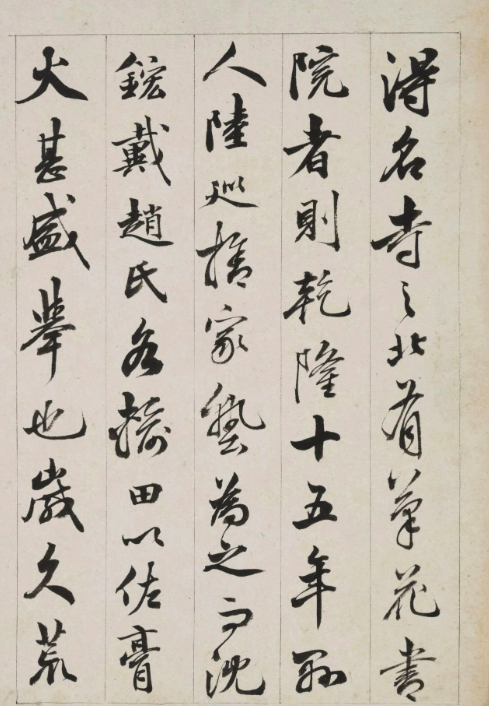 得名寺之北有筆花書
院者則乾隆十五年縣
人陸巡捨家塾為之而沈
鋐戴趙氏各輸田以佐膏
火甚盛舉也歲久荒